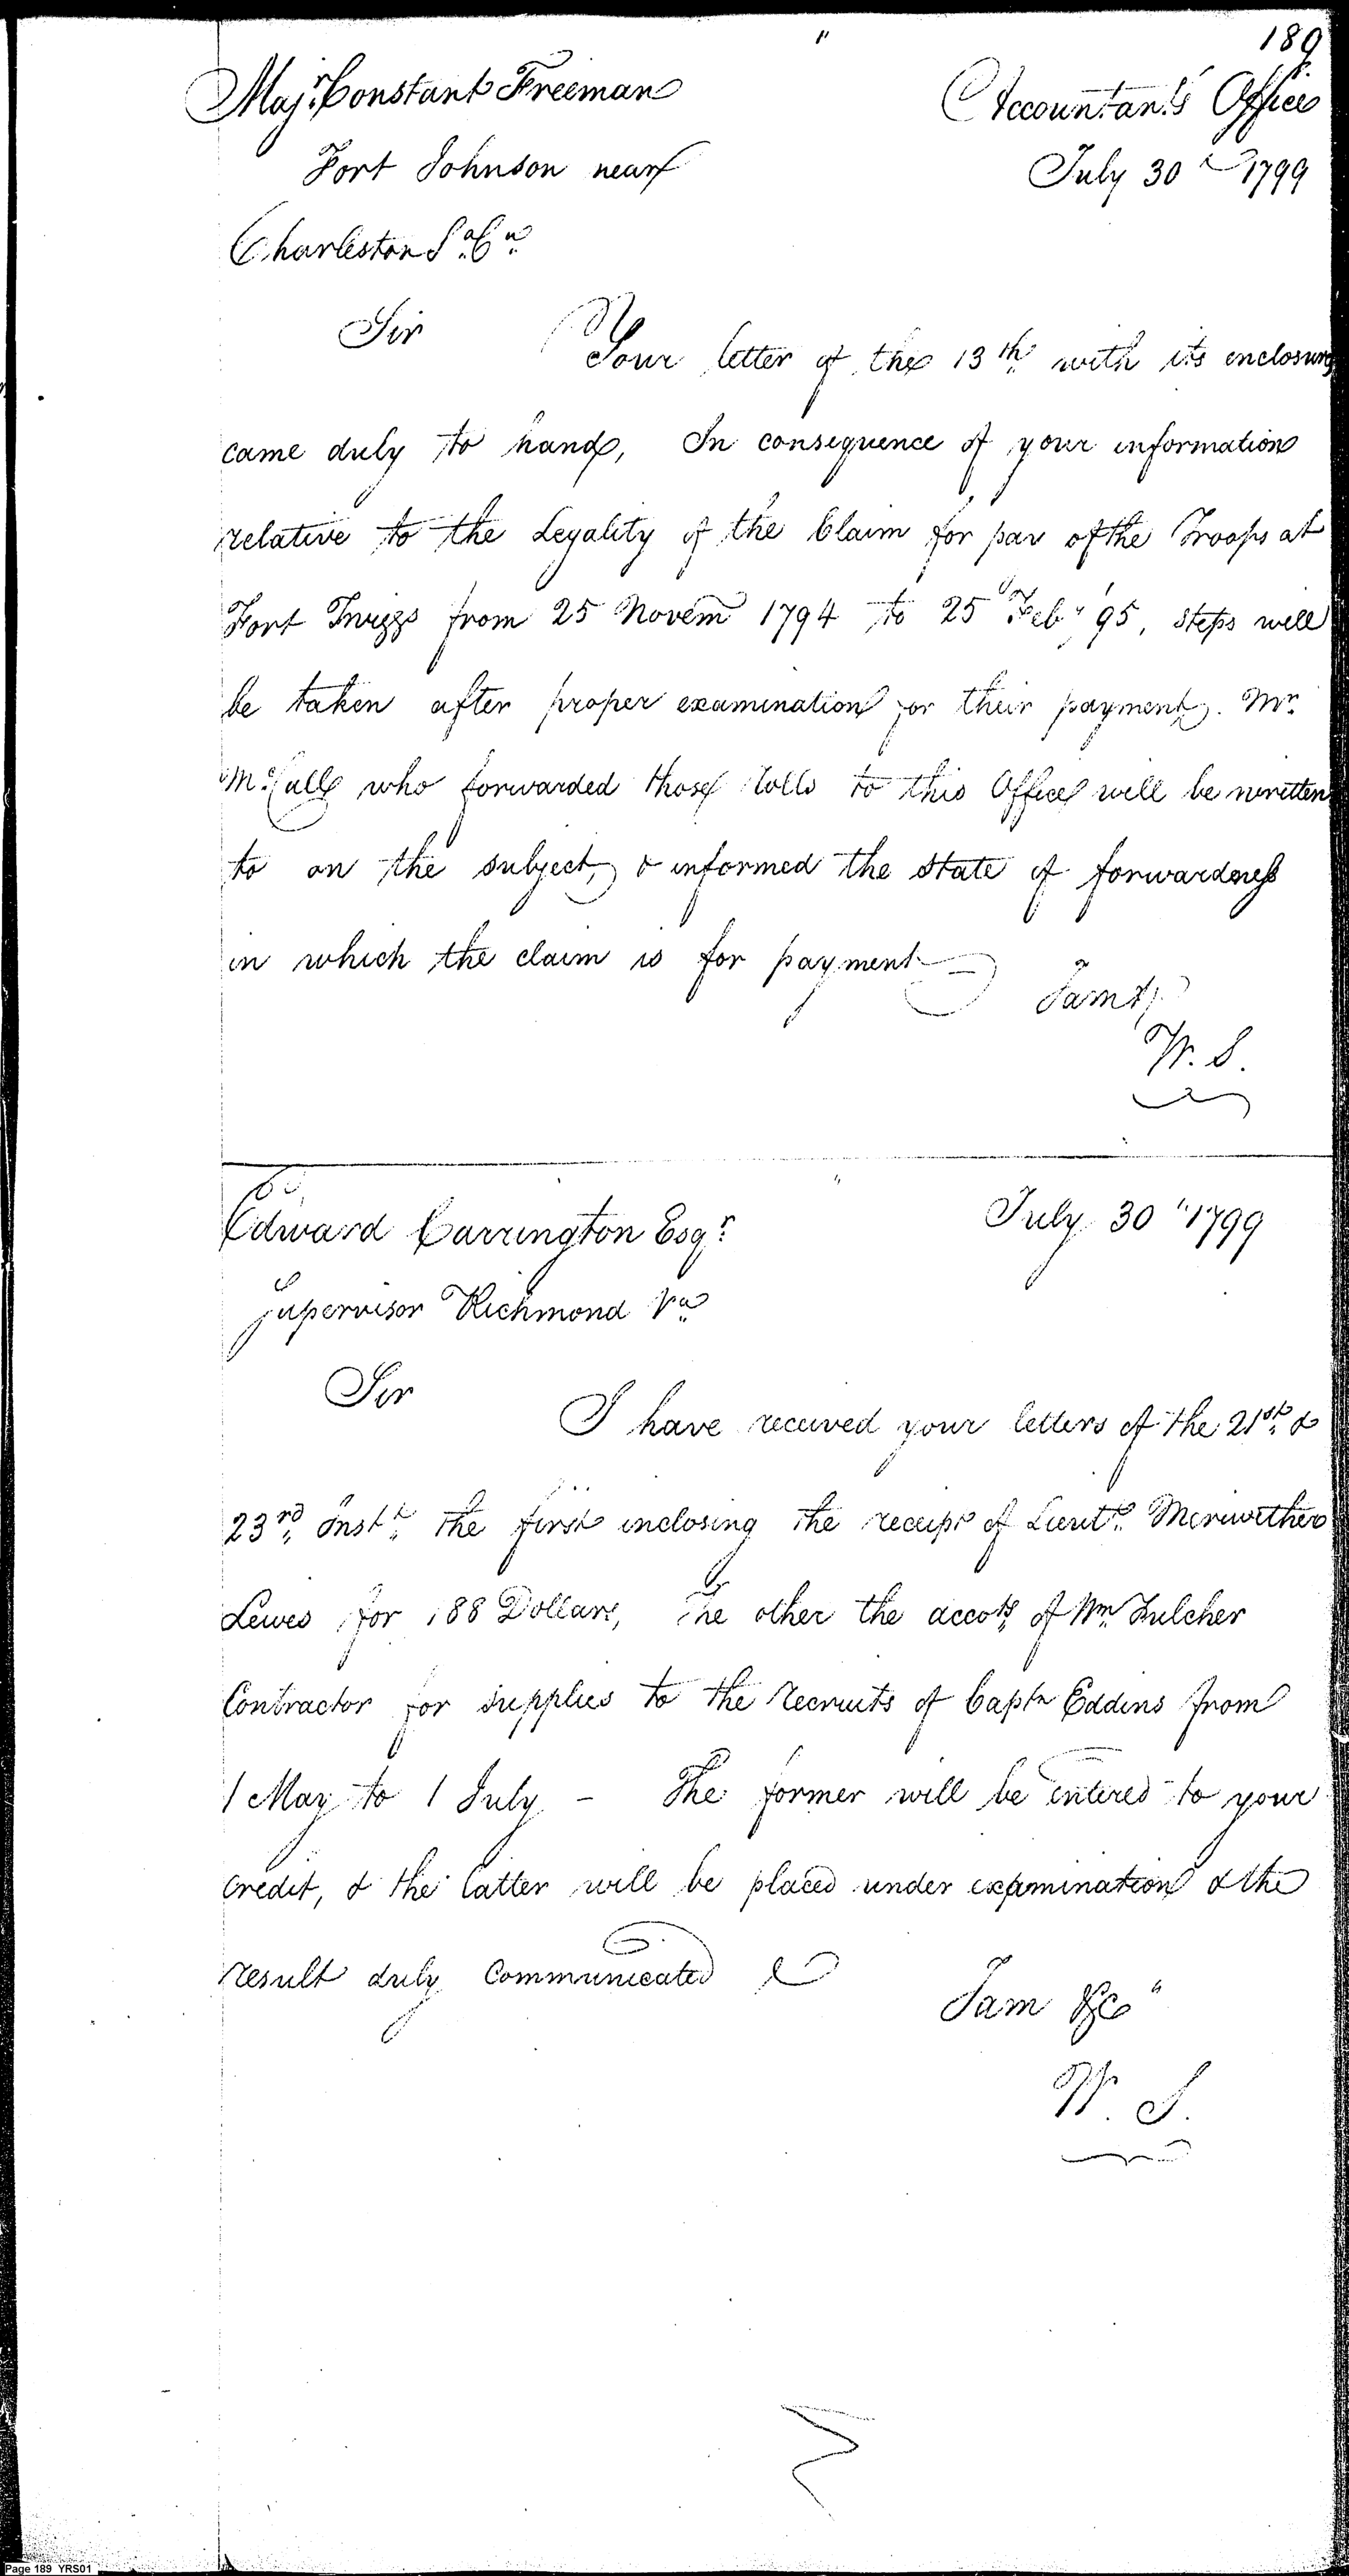 189
Majr. Constant Freeman
Accountant's Office
Fort Johnson near
July 30th 1799
Charleston So. Ca.
Sir Your letter of the 13th. with its enclosures
came duly to hand, In consequence of your information
relative to the Legality of the Claim for pay of the Troops at
Fort Twiggs from 25 Novem 1794 to 25 Feby 95, steps will
be taken after proper examination for their payment. Mr.
McCall who forwarded those Rolls to this Office will be written
to on the subject, & informed the state of forwardness
in which the claim is for payment
I am &
W. S.
Edward Carrington Esqr.
July 30 1799
Supervisor Richmond Va.
Sir
I have received your letters of the 21st. &
23rd. Instt. the first inclosing the receipt of Lieutt. Meriwether
Lewes for 188 Dollars, The other the accots. of Wm. Fulcher
Contractor for supplies to the recruits of Captn Eddins from
1 May to 1 July - The former will be entered to your
credit, & the latter will be placed under examination & the
result duly Communicated
I am &c
W. S.
Page 189 YRS01